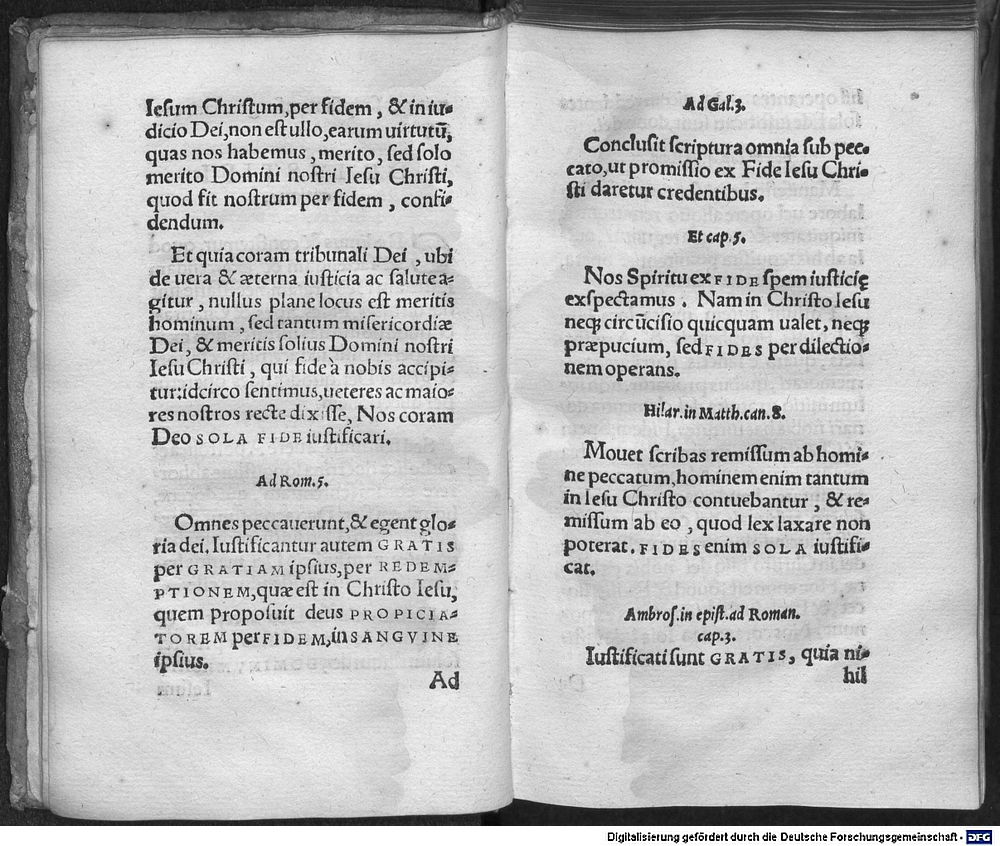 Iesum Christum, per fidem, & in iu-
dicio Dei, non est ullo, earum uirtutū,
quas nos habemus, merito, sed solo
merito Domini nostri Iesu Christi,
quod fit nostrum per fidem, confi-
dendum.
Et quia coram tribunali Dei, ubi
de uera & æterna iusticia ac salute a-
gitur, nullus plane locus est meritis
hominum, sed tantum misericordiæ
Dei, & meritis solius Domini nostri
Iesu Christi, qui fide à nobis accipi-
tur: idcirco sentimus, ueteres ac maio-
res nostros recte dixisse, Nos coram
Deo SOLA FIDE iustificari.
Ad Rom. 5.
Omnes peccauerunt, & egent glo-
ria dei. Iustificantur autem GRATIS
per GRATIAM ipsius, per REDEM-
PTIONEM, quæ est in Christo Iesu,
quem proposuit deus PROPICIA-
TOREM per FIDEM, in SANGVINE
ipsius.
Ad
Ad Gal. 3.
Conclusit scriptura omnia sub pec-
cato, ut promissio ex Fide Iesu Chri-
sti daretur credentibus.
Et cap. 5.
Nos Spiritu ex FIDE spem iusticię
exspectamus. Nam in Christo Iesu
neq; circūcisio quicquam ualet, neq;
præpucium, sed FIDES per dilectio-
nem operans.
Hilar. in Matth. can. 8.
Mouet scribas remissum ab homi-
ne peccatum, hominem enim tantum
in Iesu Christo contuebantur, & re-
missum ab eo, quod lex laxare non
poterat. FIDES enim SOLA iustifi-
cat.
Ambros. in epist. ad Roman.
cap. 3.
Iustificati sunt GRATIS, quia ni-
hil
Digitalisierung gefördert durch die Deutsche Forschungsgemeinschaft - DFG